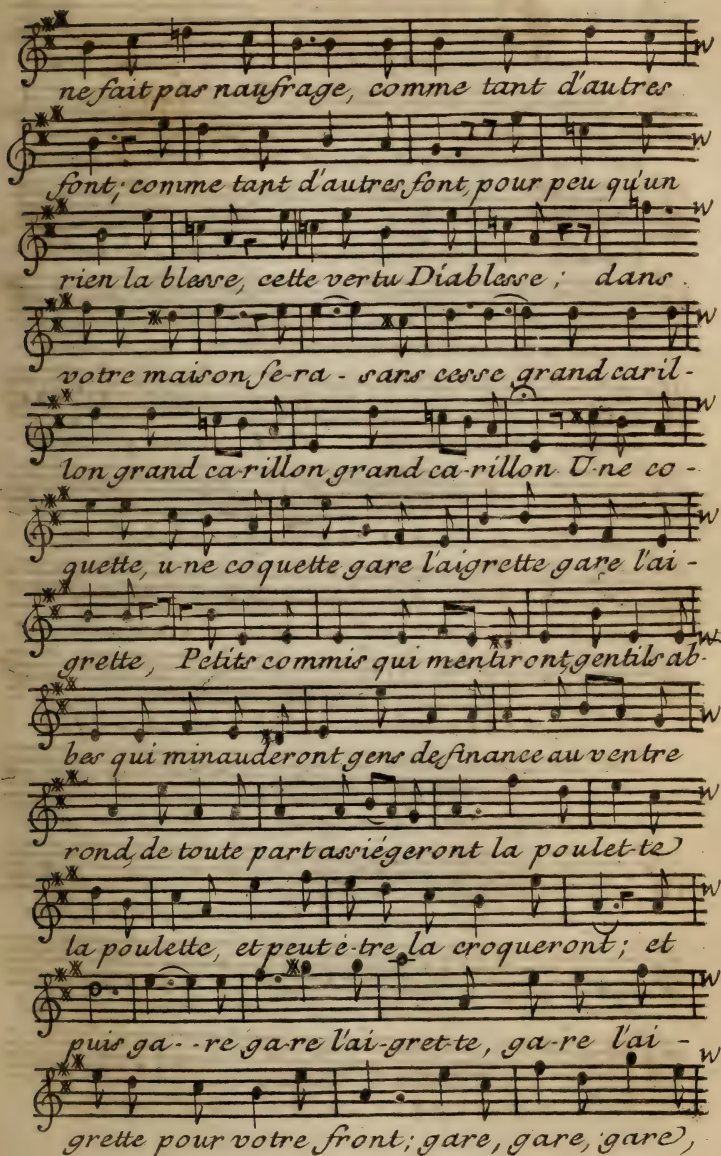 ne fait pas naufrage, comme tant d'autres
font; comme tant d'autres font, pour peu qu'un
rien la blesse, cette vertu Diablesse; dans
votre maison se-ra - sans cesse grand caril-
lon grand ca-rillon grand ca-rillon U-ne co-
quette, u-ne coquette gare l'aigrette gare l'ai-
grette, Petits commis qui mentiront, gentils ab-
bes qui minauderont gens de finance au ventre
rond, de toute part assiégeront la poulet-te
la poulette, et peut é-tre la croqueront; et
puis ga--re ga-re l'ai-gret-te, ga-re l'ai-
grette pour votre front; gare, gare, gare,